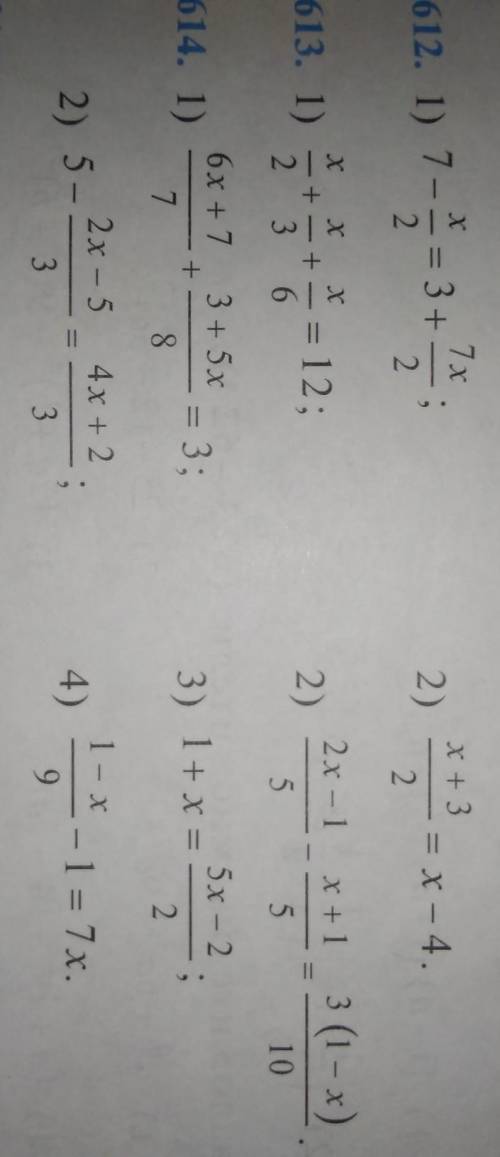 612. 1) 7 − x/2 = 3 + 7x/2; 2) (x + 3)/2 = x − 4.
613. 1) x/2 + x/3 + x/6 = 12; 2) (2x − 1)/5 − (x + 1)/5 = 3(1 − x)/10.
614. 1) (6x + 7)/7 + (3 + 5x)/8 = 3; 3) 1 + x = (5x − 2)/2;
2) 5 − (2x − 5)/3 = (4x + 2)/3; 4) (1 − x)/9 − 1 = 7x.